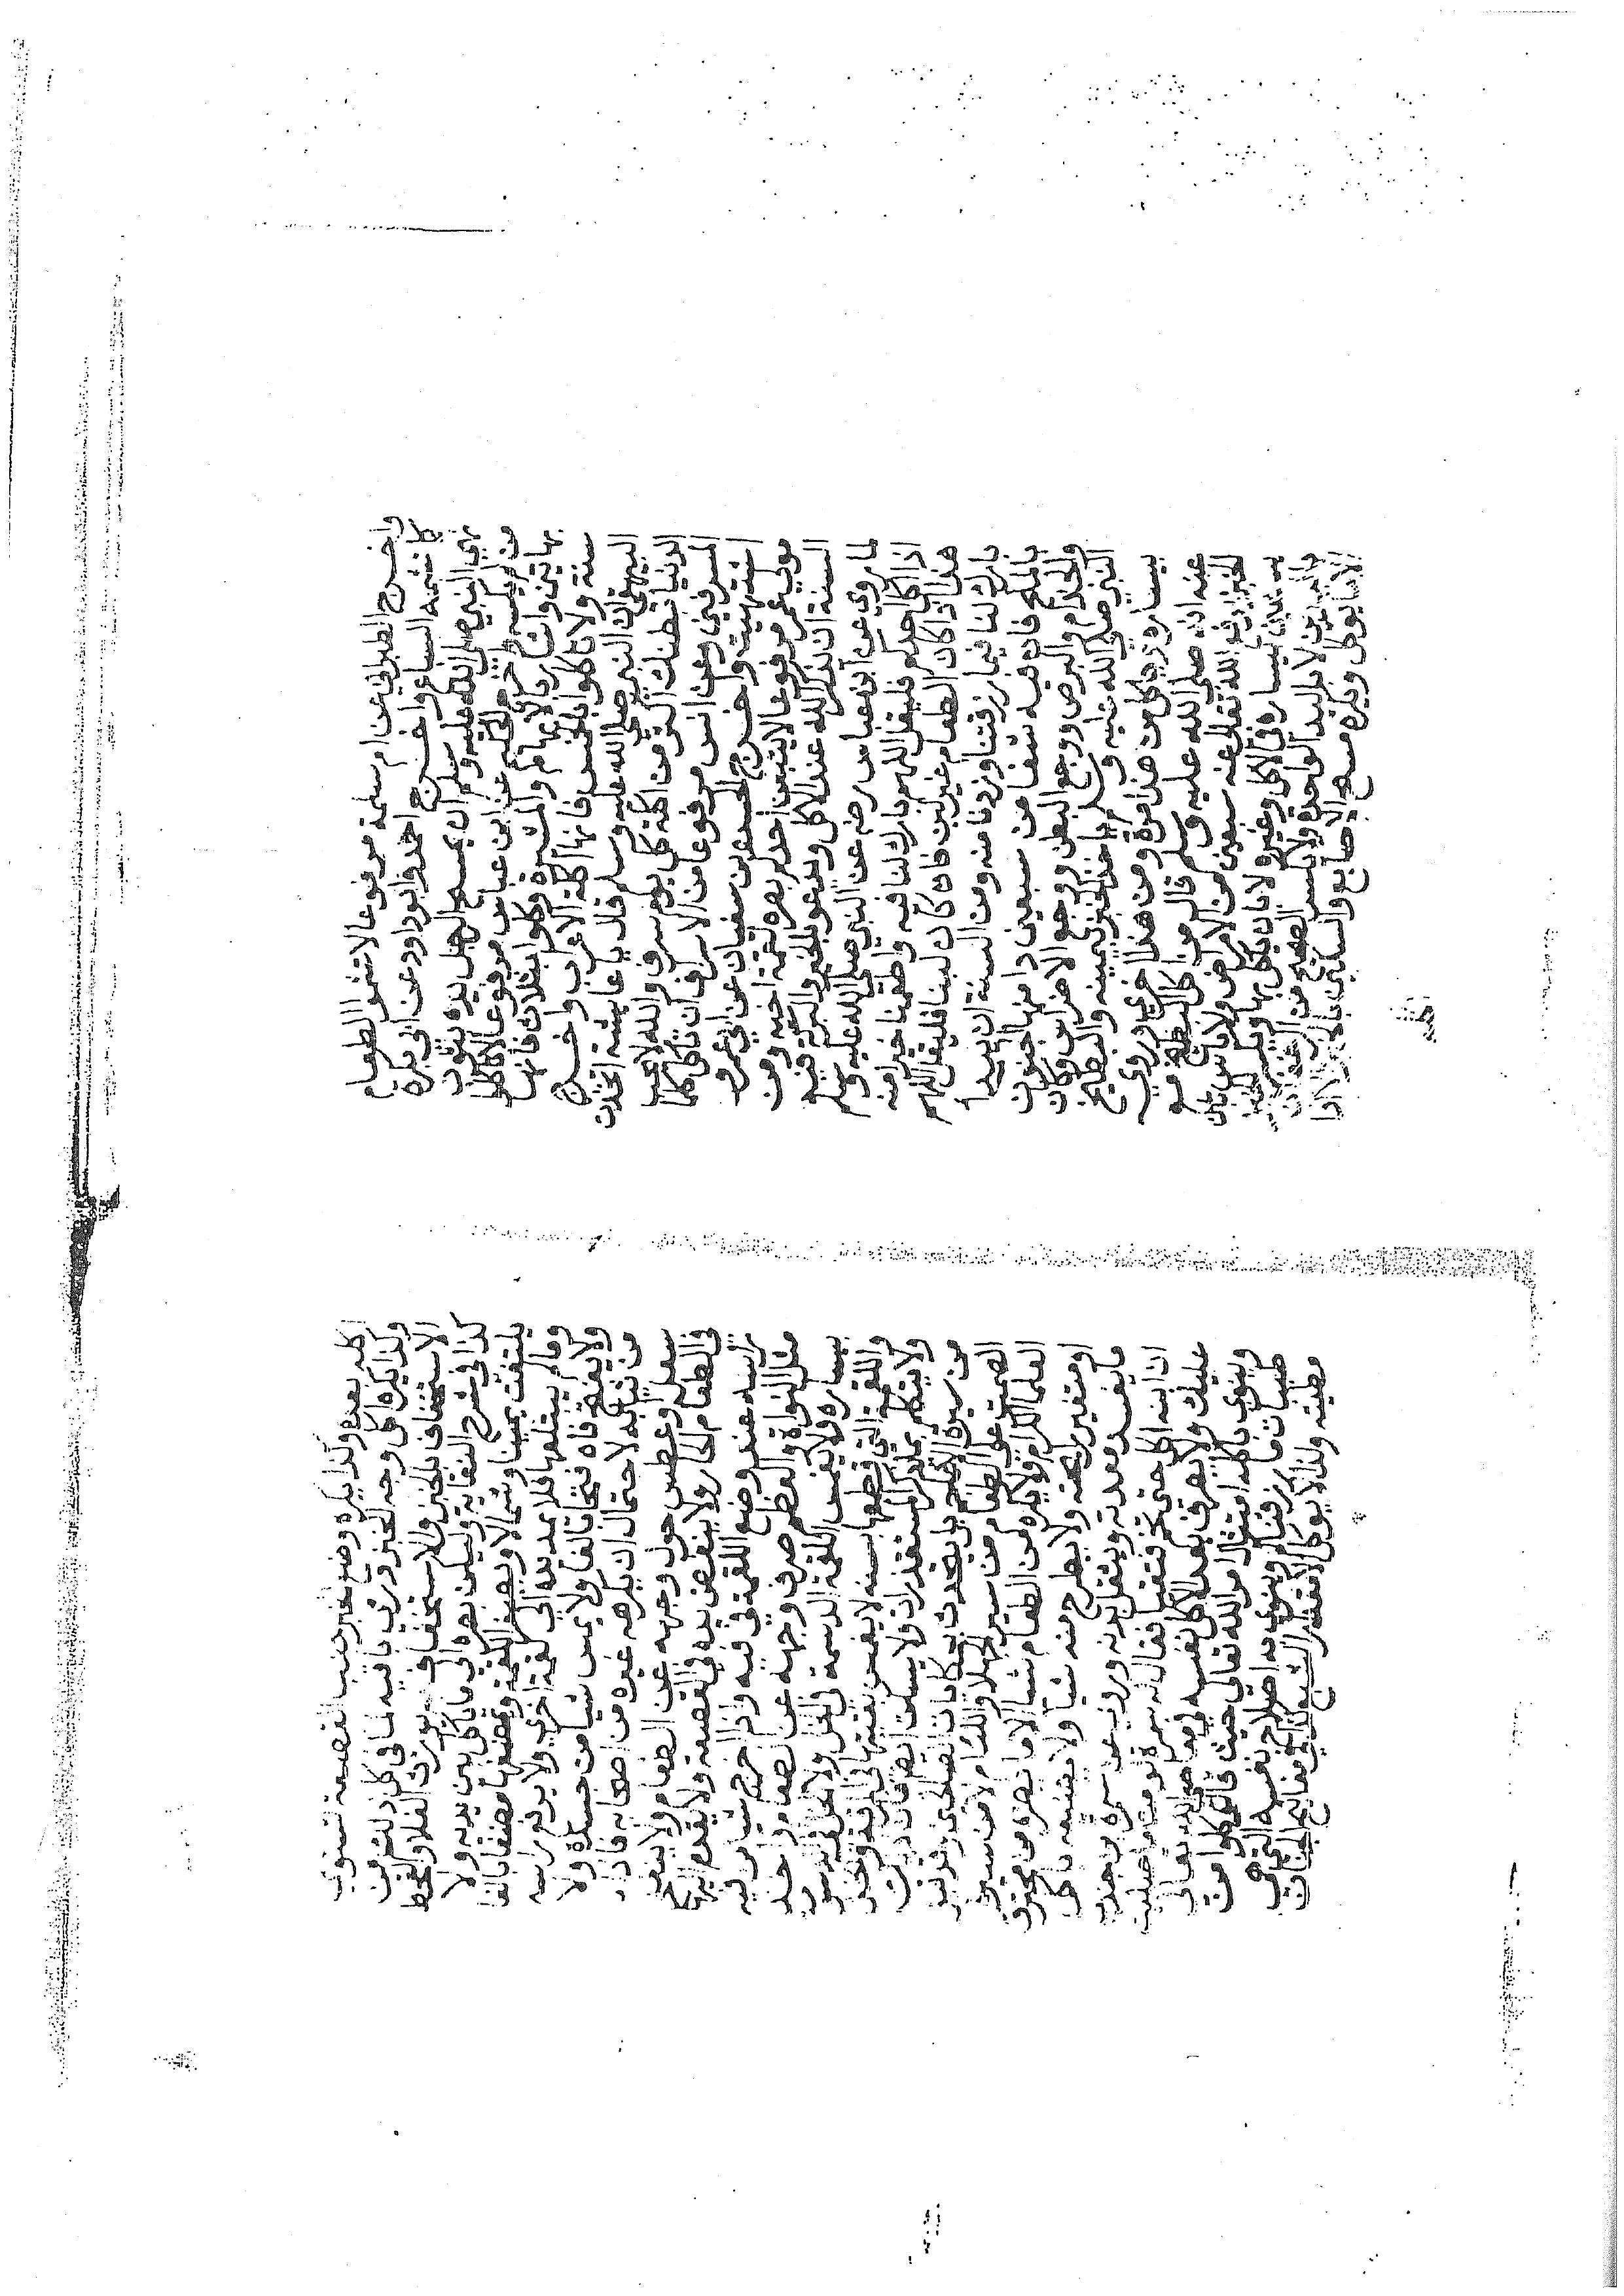 واخرج الطبراني عن ام سلمة مرفوعا لا تشموا الطعام
كما تشمه السباع واخرج احمد وابوداود عن ابي بكرة
نهى النبي صلى الله عليه وسلم ان يمسح الرجل يده بثوب
من لم يكسه واخرج الحكيم عن ابن عباس مرفوعا لا تاكلوا
بهاتين واشار بالابهام والمشيرة وكلوا بثلاث فانها
سنة ولا تاكلوا بالخمس فانها اكلة الاعراب واخرج
البيهقي ان النبي صلى الله عليه وسلم قال يا عايشة اتخذت
الدنيا بطنك اكثر من اكلة كل يوم سرف والله لا يحب
المسرفين وعن انس مرفوعا من الاسراف ان تاكل كلما
اشتهيت واخرج الحسن بن سفيان عن ابي عمرو
مولى عمر مرفوعا لا يتبعن احدكم بصره لقمة اخيه ومن
السنة ان نذكر الله عند الاكل وندعو بالخير والبركة فيه
لما روي عن ابن عباس رضي عن النبي صلى الله عليه وسلم
اذا اكل احدكم فليقل اللهم بارك لنا فيه واطعمنا خيرا منه
هذا اذا كان الطعام غير لبن فان كان لبنا فليقل اللهم
بارك لنا فيما رزقتنا وزدنا منه ومن السنة ان يبدا
بالملح فان فيه شفا من سبعين دا منها الجنون
والجذام والبرص ووجع البطن ووجع الاضراس وكان
النبي صلى الله عليه وسلم ياخذ الخبز بيمينه والبطيخ
بيساره وياكل من هذا مرة ومن هذا اخرى وروي
عنه انه صلى الله عليه وسلم قال من اكل البطيخ مع
الخبز رفع الله تعالى عنه سبعين من الامراض ولا باس بان
يساره في الاكل وغيره لا بان ياكل بها ويكسر
باليدين لا باليد الواحدة ولا يكسر الصحيح من
يوكل ويكره مسح الاصابع والسكين
اكله بعده وكذا يكره وضع الخبز جنب القصعة لتستوي
وكذا يكره اكل وجه الخبز ورمي باقيه لما في كل ذلك من
الاستخفاف بالخبز والاستخفاف به يورث الغلا والقحط
كذا في شرح النقاية وليكن نظره الى ما ياكل بين يديه ولا
يلتفت يمينا وشمالا ويصغر اللقمة ويمضغها مضغا بالغا
وما لم يبتلعها فلا يمد يده الى لقمة اخرى ولا يرفع راسه
ولا يفتح فاه فتحا بالغا ولا يمس شيا من جسده ولا
من ثيابه لاحتمال ان يكرهه غيره من اصحابه فاذا
سعل او عطس حول وجهه عن الطعام ولا ينفخ
في الطعام الحار ولا ينفض يده في القصعة ولا يقدم اليها
راسه عند وضع اللقمة في فيه واذا اخرج شيا من فيه
مثل النواة والعظم صرف وجهه عن الطعام واخذ
بيساره ولا يغمس اللقمة الدسمة في الخل ولا الخل في الدسومة
واللقمة التي قطعها بسنه لا يغمس بقيتها في المرقة والخل
ولا يتكلم بما يذكر المستقذرات ولا يسكت ايضا فان ذلك
من سيرة العجم بل يتحدث بحكايات الصالحين
الصمت على الطعام من سير الجهلا واللئام لا من سير
العلما الكرام ولا يكره من الطعام شيا الا ما يضره من محترق
او متغير رايحته ولا يطرح منه شيا ولا يشبع بل ياكل
ما يفسد معدته ويثقل بدنه وروي عن سمرة بن جندب
ان ابنه اكل حتى تخم فتقيا فقال له سمرة لو مت ما صليت
عليك ولا يصرف بعد الاكل نفسه في معاصي الله تعالى
وينوي باكله امتثال امر الله تعالى حيث قال كلوا من
طيبات ما رزقناكم وينوي به اصلاح نفسه التي هي
مطيته ولذا لا يوكل